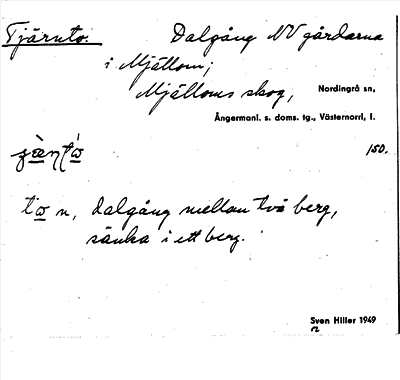 Tjärnto. Dalgång NV gårdarna
i Mjällom;
Mjälloms skog, Nordingrå sn,
Ångermanl. s. doms. tg., Västernorrl. l.
150.
n, dalgång mellan två berg,
sänka i ett berg.
Sven Hiller 1949